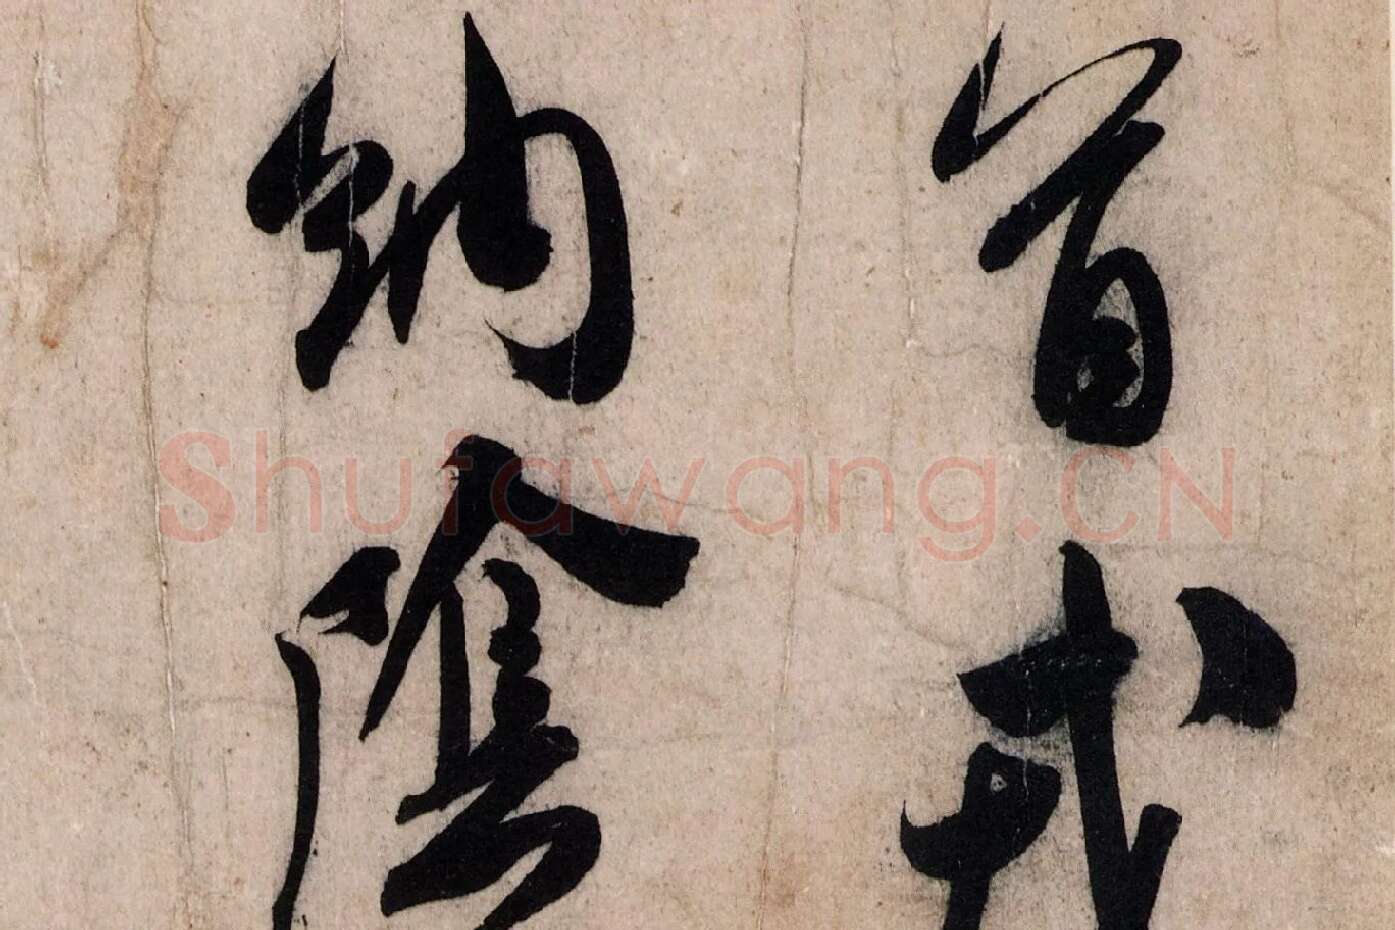 首
納陰
Shufawang.CN